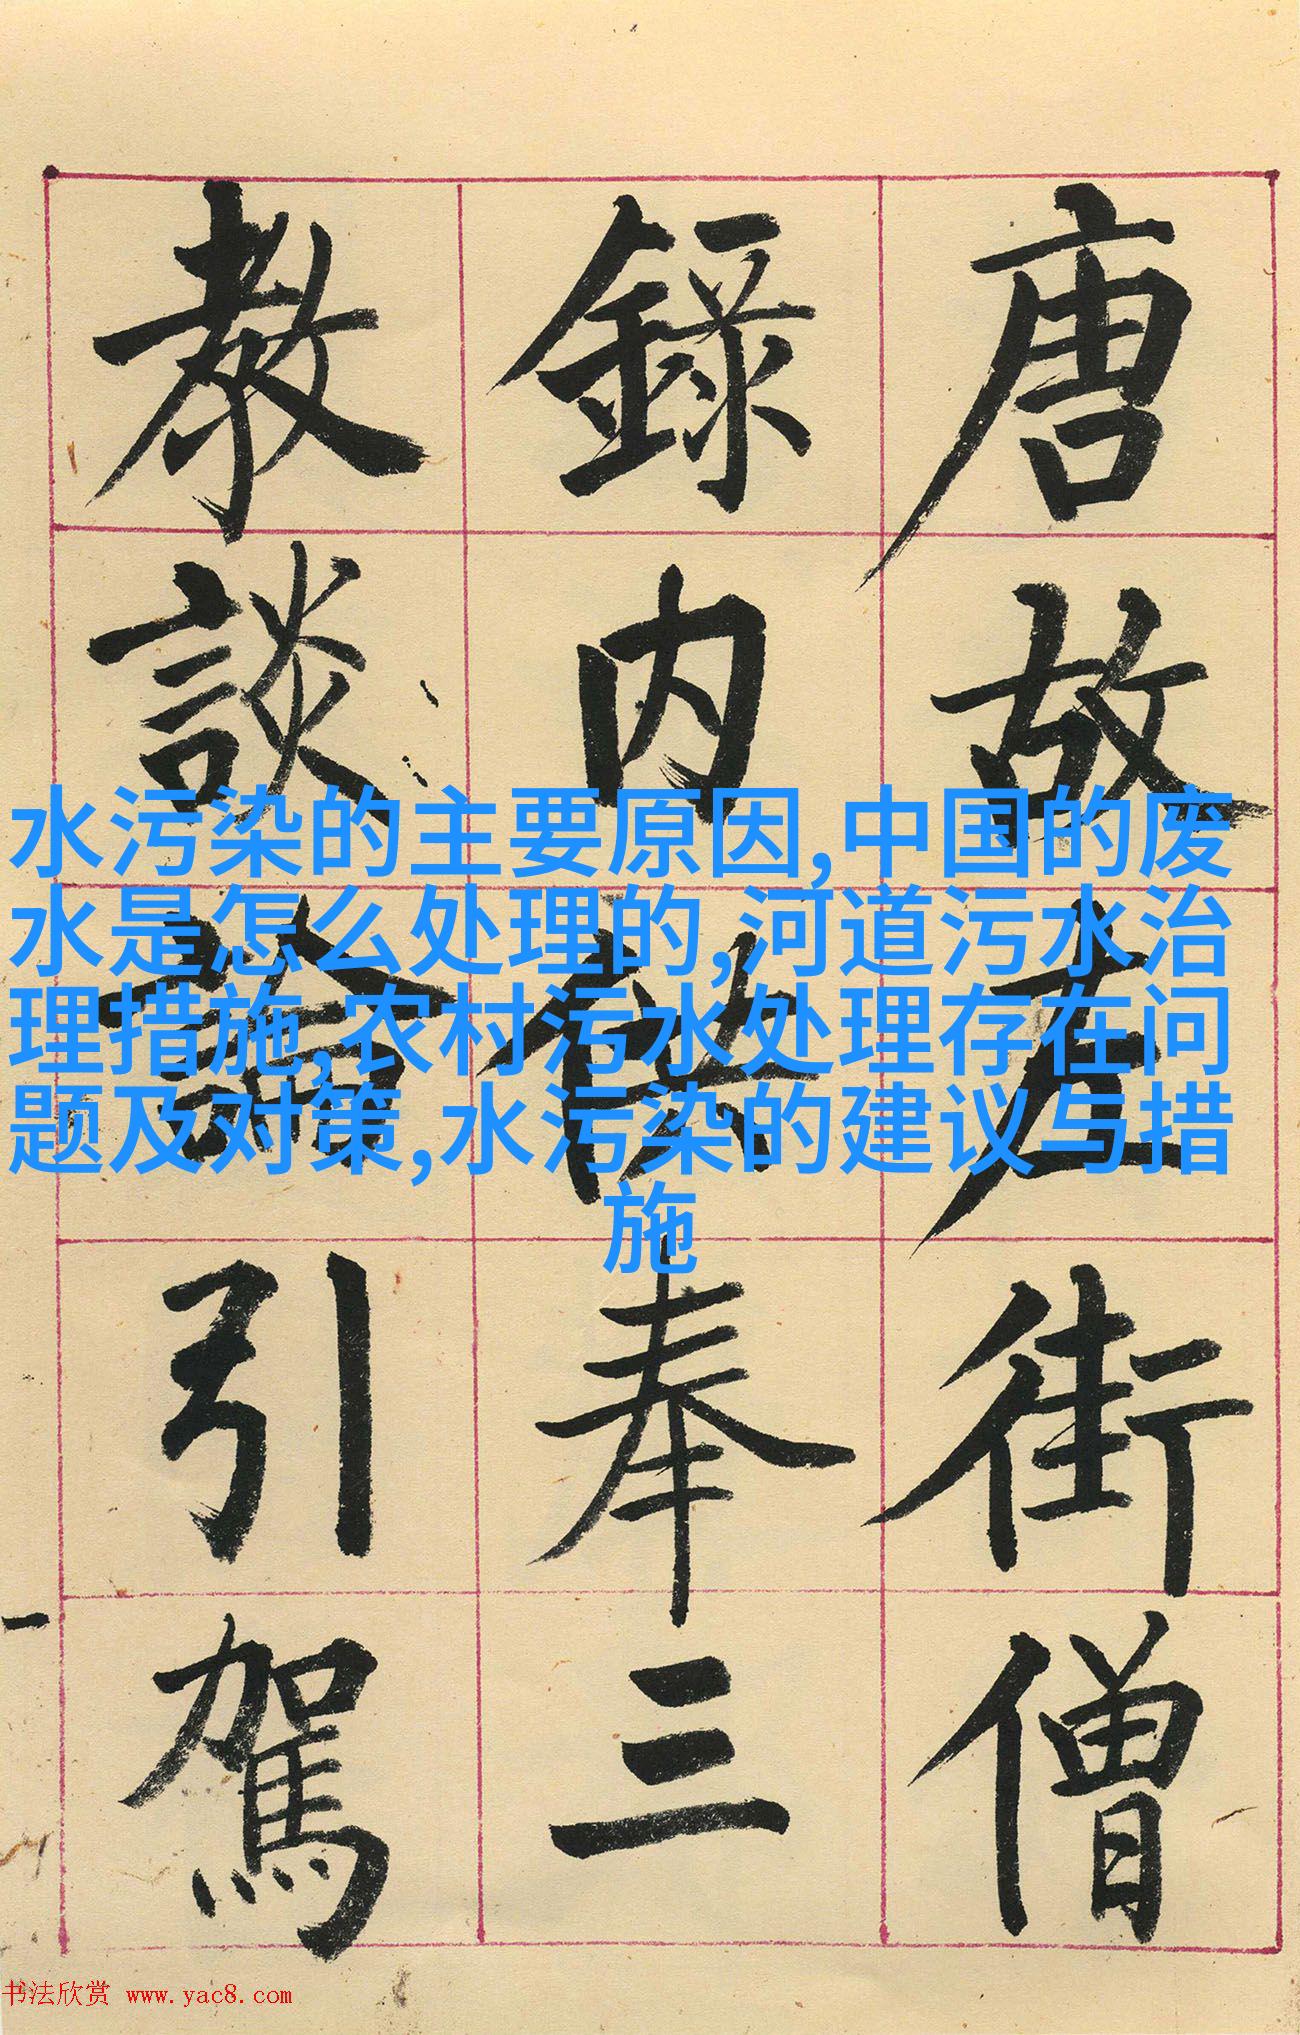 唐故左街僧
錄內供奉三
教談論引駕
水污染的主要原因,中国的废
水是怎么处理的,河道污水治
理措施,农村污水处理存在问
题及对策,水污染的建议与措
施
书法欣赏 www.yac8.com